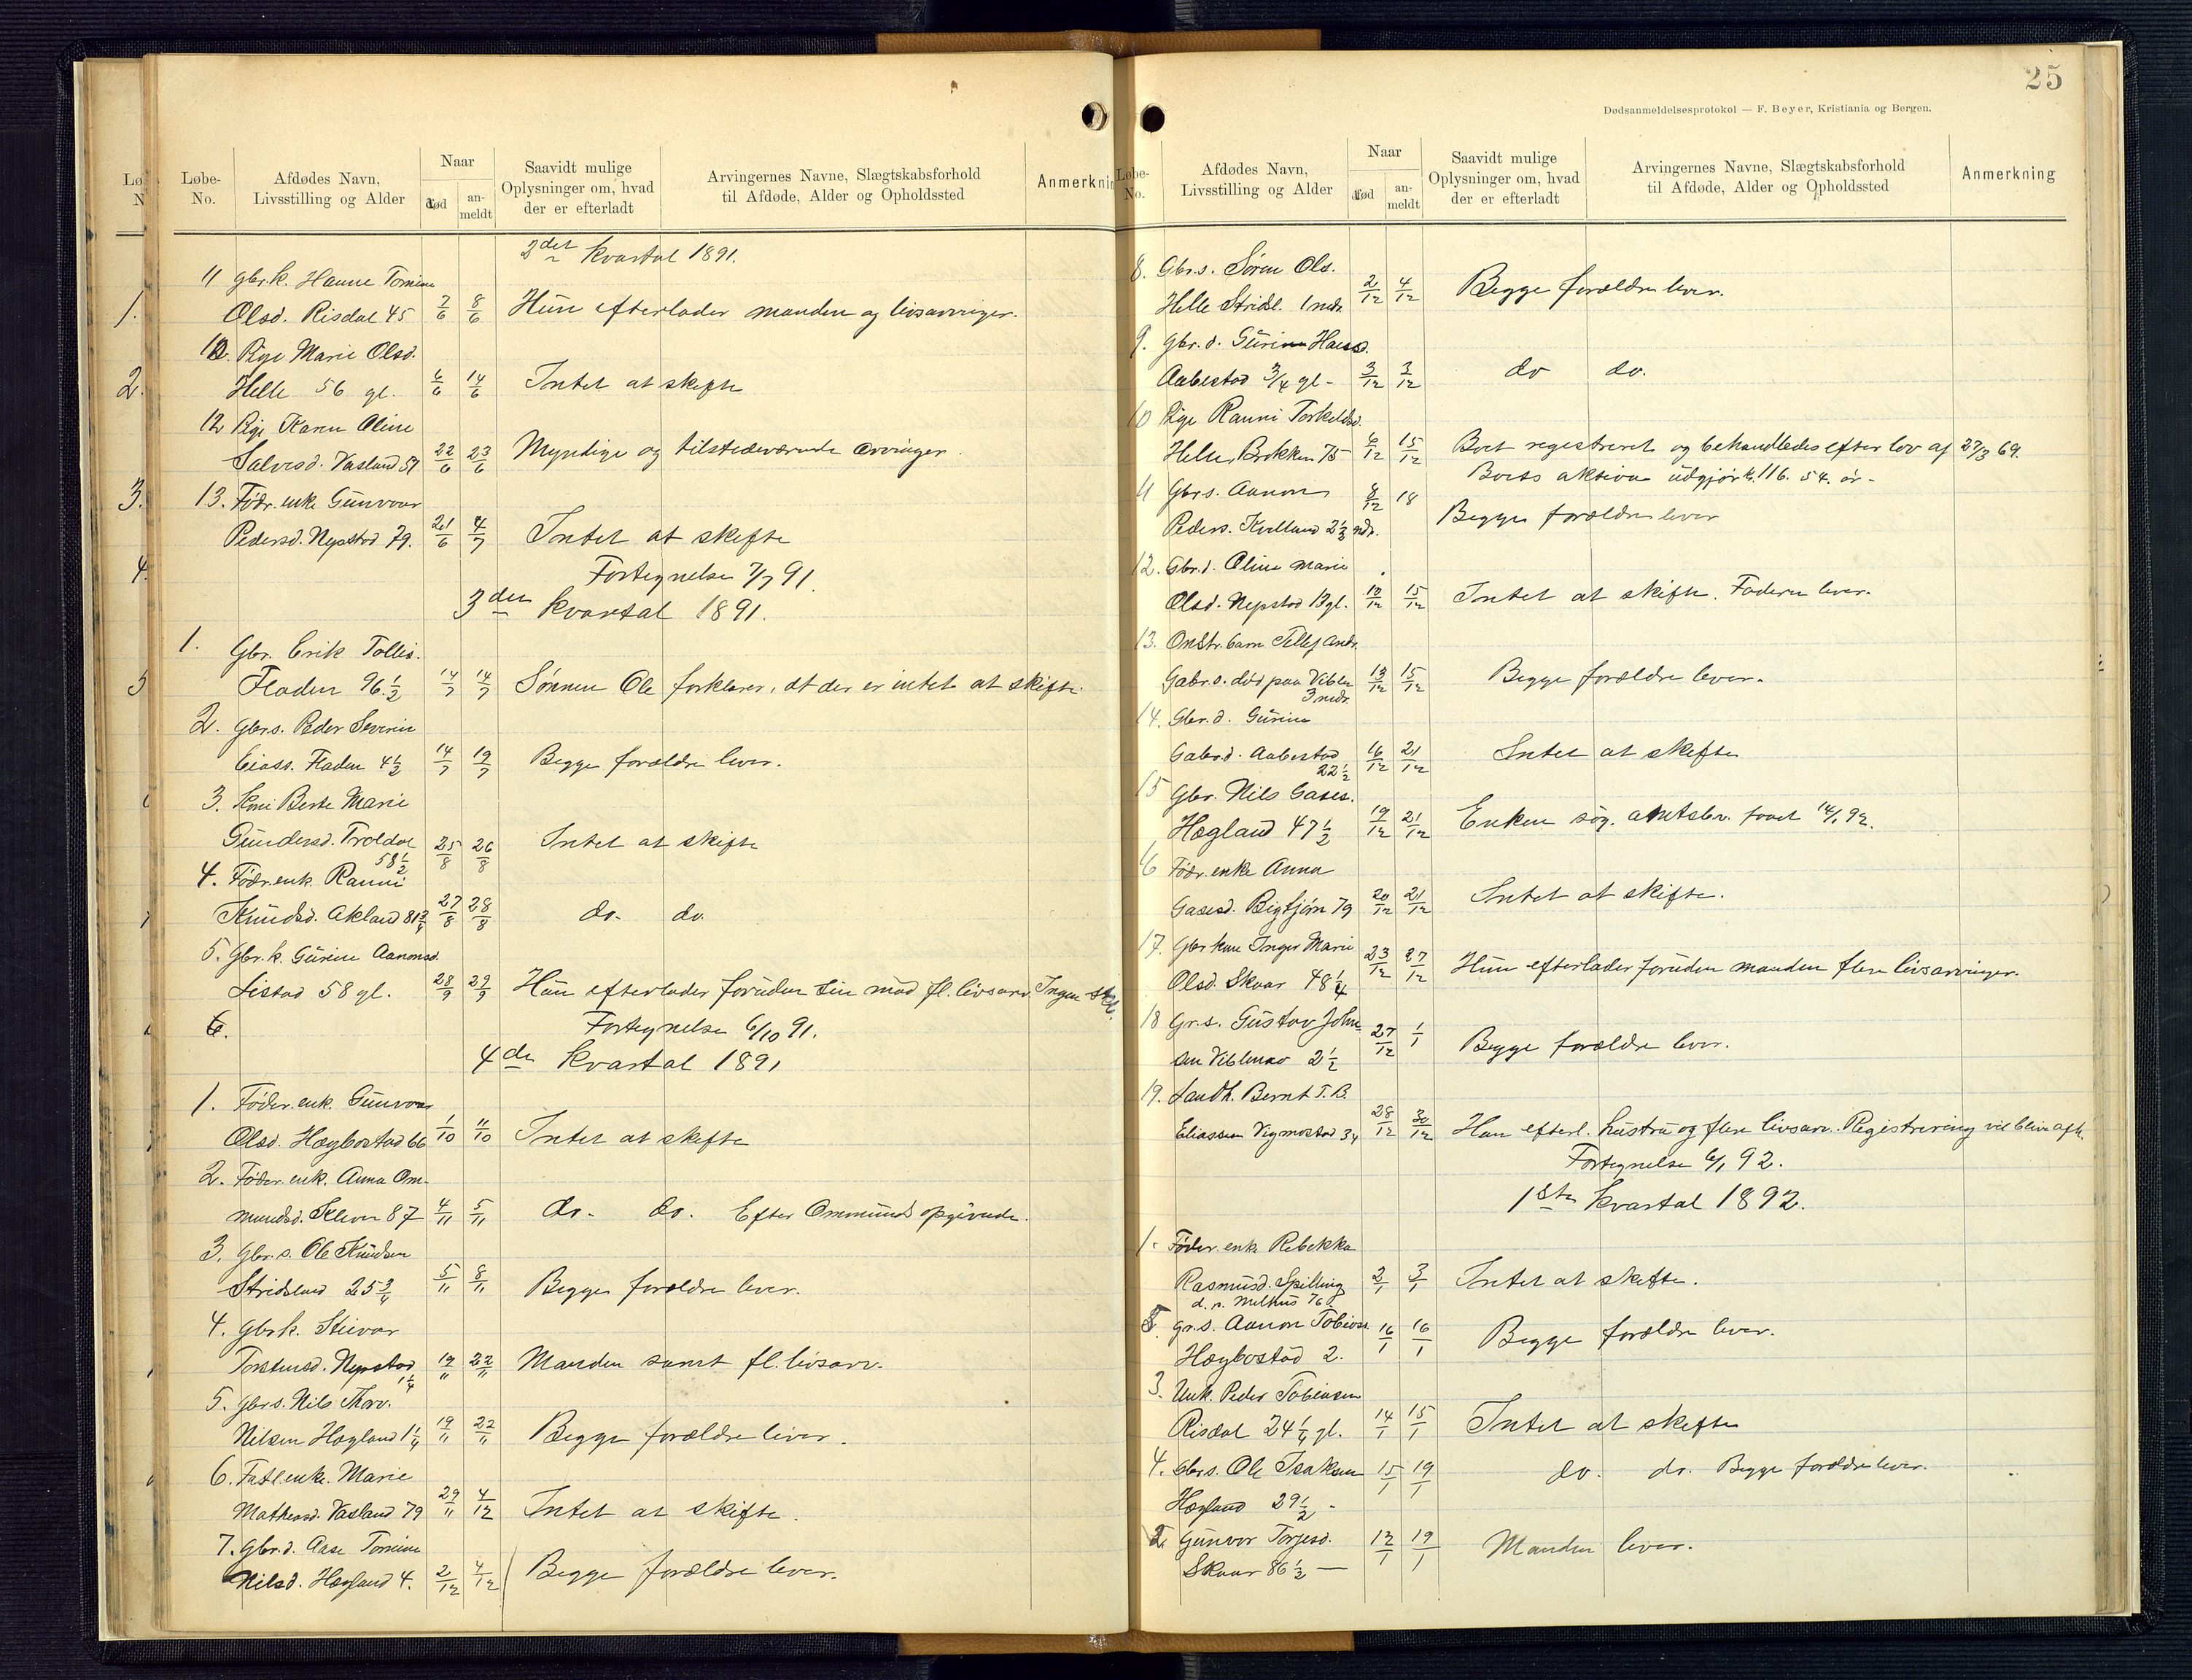 Løbe-
No.
Afdødes Navn,
Livsstilling og Alder
Naar
død
an-
meldt
Saavidt mulige
Oplysninger om, hvad
der er efterladt
Arvingernes Navne, Slægtskabsforhold
til Afdøde, Alder og Opholdssted
Anmerknin
2det kvartal 1891.
11 Gbr.k. Hanne Tomine
Olsd. Risdal 45 7/6 8/6 Hun efterlader manden og livsarvinger.
12. Pige Marie Olsd.
Helle 56 gl. 6/6 14/6 Intet at skifte
12 Pige Karen Oline
Salvesd. Vasland 57 22/6 23/6 Myndige og tilstedeværende arvinger.
13. Fødr.enke Gunvor
Pedersd. Nepstad 79. 21/6 4/7 Intet at skifte
Fortegnelse 7/7 91.
3den kvartal 1891.
1. Gbr. Erik Tollis.
Fladen 96 1/2 14/7 14/7 Sønnen Ole forklarer, at der er intet at skifte.
2. Gbr.s. Peder Severin
Eliass. Fladen 4 1/2 14/7 19/7 Begge forældre lever.
3. Kone Berte Marie
Gundersd. Troldal
58 1/2 25/8 26/8 Intet at skifte
4. Fødr.enk. Ranni
Knudsd. Akland 81 3/4 27/8 28/8 do. do.
5. Gbr.k. Gurine Aanonsd.
Listad 58 gl. 28/9 29/9 Hun efterlader foruden sin mand fl. livsarv. Ingen skf.
6.
Fortegnelse 6/10 91.
4de kvartal 1891
1. Føder.enk. Gunvor
Olsd. Hægbostad 66 1/10 11/10 Intet at skifte
2. Føder.enk. Anna Om-
mundsd. Kleven 87 4/11 5/11 do. do. Efter Ommunds opgivende.
3. Gbr.s. Ole Knudsen
Stridsland 25 3/4 5/11 8/11 Begge forældre lever.
4. Gbr.k. Siivor
Torstensd. Nepstad 19/11 22/11 Manden samt fl. livsarv.
1 1/4
5. Gbr.s. Nils Thorv.
Nilsen Høgland 1 1/4 19/11 22/11 Begge forældre lever.
6. Fatl.enke. Marie
Matheasd. Vasland 79 29/11 4/12 Intet at skifte.
7. Gbr.d. Aase Tomine
Nilsd. Høgland 4. 2/12 4/12 Begge forældre lever.
25
Dødsanmeldelsesprotokol — F. Beyer, Kristiania og Bergen.
Løbe-
No.
Afdødes Navn,
Livsstilling og Alder
Naar
død
an-
meldt
Saavidt mulige
Oplysninger om, hvad
der er efterladt
Arvingernes Navne, Slægtskabsforhold
til Afdøde, Alder og Opholdssted
Anmerkning
8. Gbr.s. Søren Ols.
Helle Stridsl. 1 mdr. 2/12 4/12 Begge forældre lever.
9. Gbr.d. Gurine Hansd.
Aabestad 3/4 gl- 3/12 3/12 do do.
10 Pige Ranni Torkeldsd.
Helle, Brekken 75 6/12 15/12 Boet registreret og behandledes efter lov af 27/3 69.
Boets aktiva udgjør k. 116. 54. ør-
11 Gbr.s. Aanon 8/12 18
Peders. Kvelland 2 1/2 mdr. Begge forældre lever
12. Gbr.d. Oline Marie
Olsd. Nepstad 13 gl. 10/12 15/12 Intet at skifte. Faderen lever.
13. Omstr. barn Tellef Andr.
Gabr.s. død paa Viblem. 13/12 15/12 Begge forældre lever.
3 mdr.
14. Gbr.d. Gurine
Gabr.d. Aabestad 16/12 21/12 Intet at skifte
22 1/2
15 Gbr. Nils Gases.
Høgland 47 1/2 19/12 21/12 Enken søg. amtsbr. faaet 14/1 92.
16 Fødr.enke Anna
Gasesd. Bigtjøn 79 20/12 21/12 Intet at skifte.
17. Gbr kone Inger Marie
Olsd. Skaar 48 1/4 23/12 27/12 Hun efterlader foruden manden flere livsarvinger.
18 Gr.s. Gustav John-
sen Viblemo 2 1/2 27/12 1/1 Begge forældre lever.
19. Landh. Bernt T.B.
Eliassen Vigmostad 34 28/12 30/12 Han efterl. hustru og flere livsarv. Registrering vil blive afh.
Fortegnelse 6/1 92.
1ste kvartal 1892.
1. Føder.enke Rebekka
Rasmusd. Spilling 2/1 3/1 Intet at skifte.
d. p. Melhus 76
2. Gr.s. Aanon Tobiass. 16/1 16/1 Begge forældre lever.
Hægbostad 2.
3. Unk. Peder Tobiasen
Risdal 24 1/4 gl. 14/1 15/1 Intet at skifte
4. Gbr.s. Ole Isaksen 15/1 19/1 do. do. Begge forældre lever.
Høgland 29 1/2 -
5. Gunvor Torjesd. 12/1 19/1 Manden lever.
Skaar 86 1/2 —